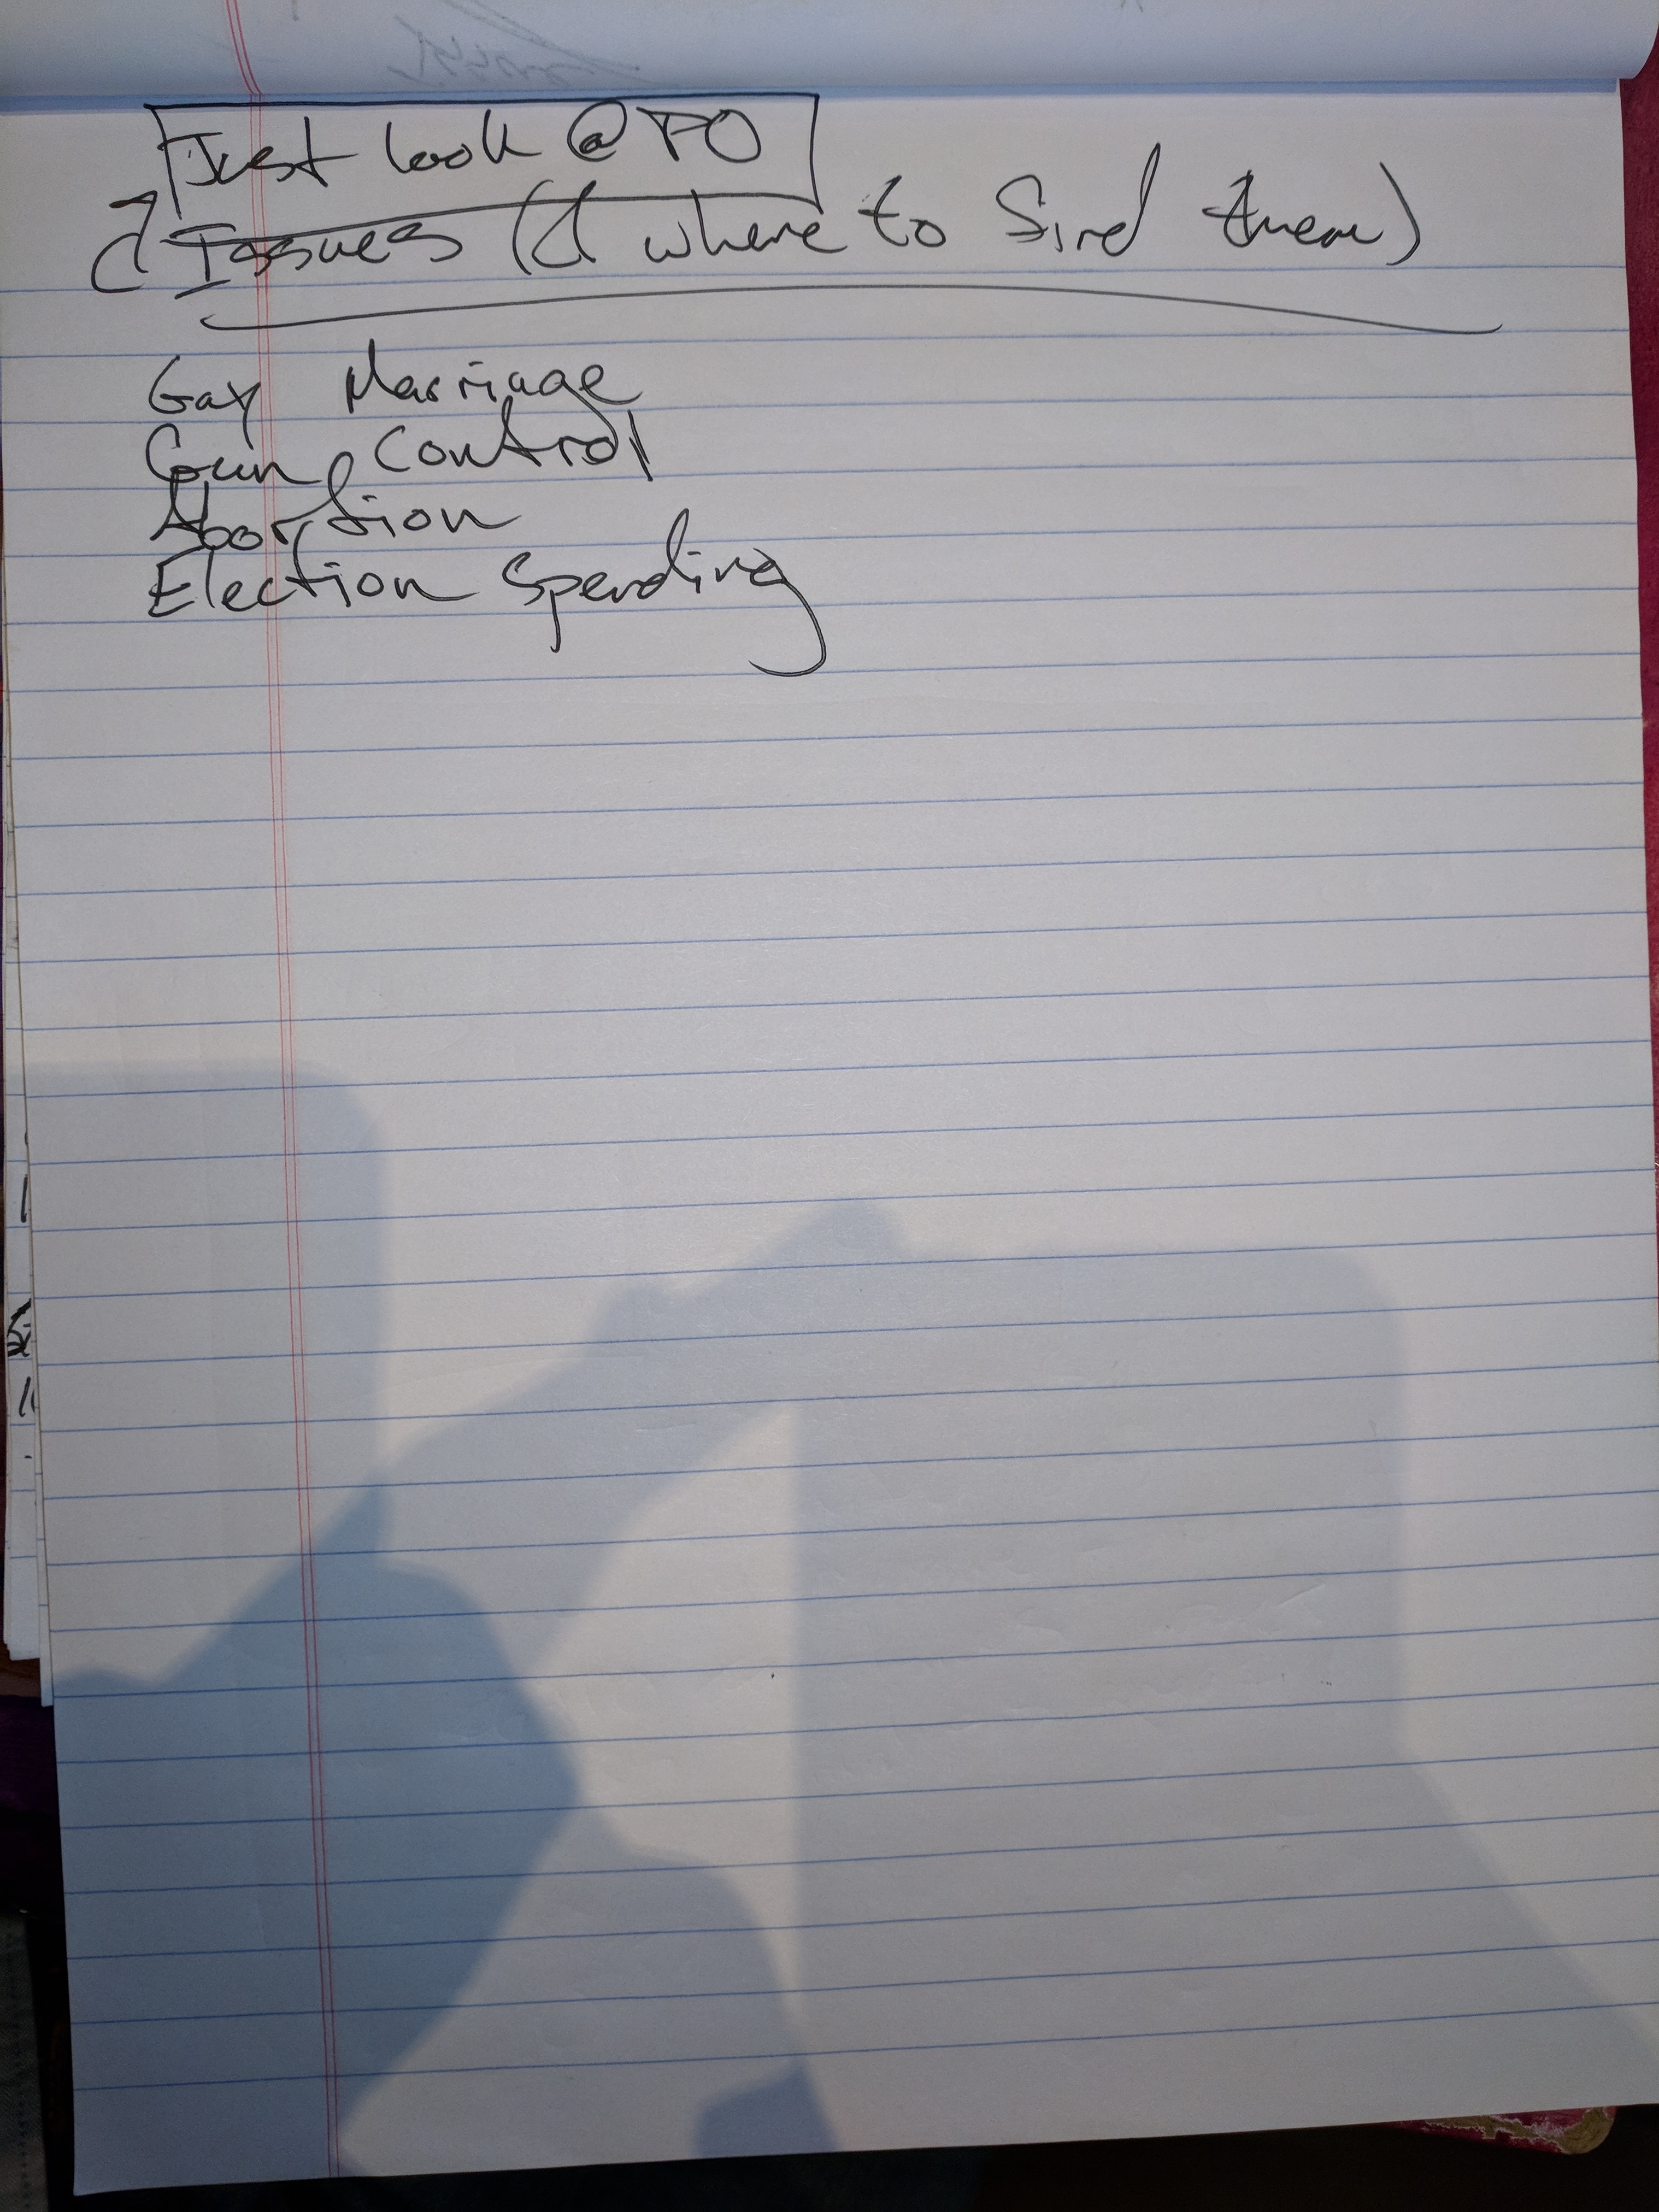 Just look @ PO
Issues (& where to find them)
Gay Marriage
Gun Control
Abortion
Election Spending